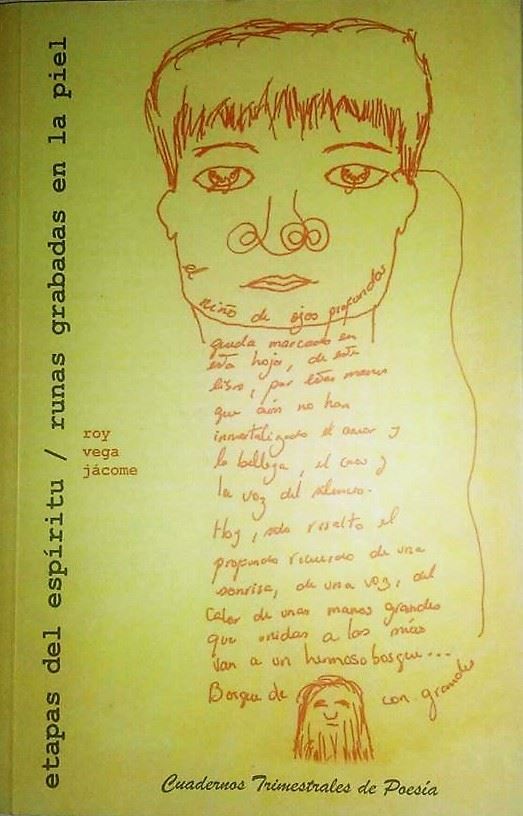 etapas del espíritu / runas grabadas en la piel
roy
vega
jácome
el niño de ojos profundos
queda marcado en
esta hoja, de este
libro, por estas manos
que aún no han
inmortalizado el amor y
la belleza, el caos y
la voz del silencio.
Hoy, solo resalto el
profundo recuerdo de una
sonrisa, de una voz, del
calor de unas manos grandes
que unidas a las mías
van a un hermoso bosque...
Bosque de
con grandes
Cuadernos Trimestrales de Poesía